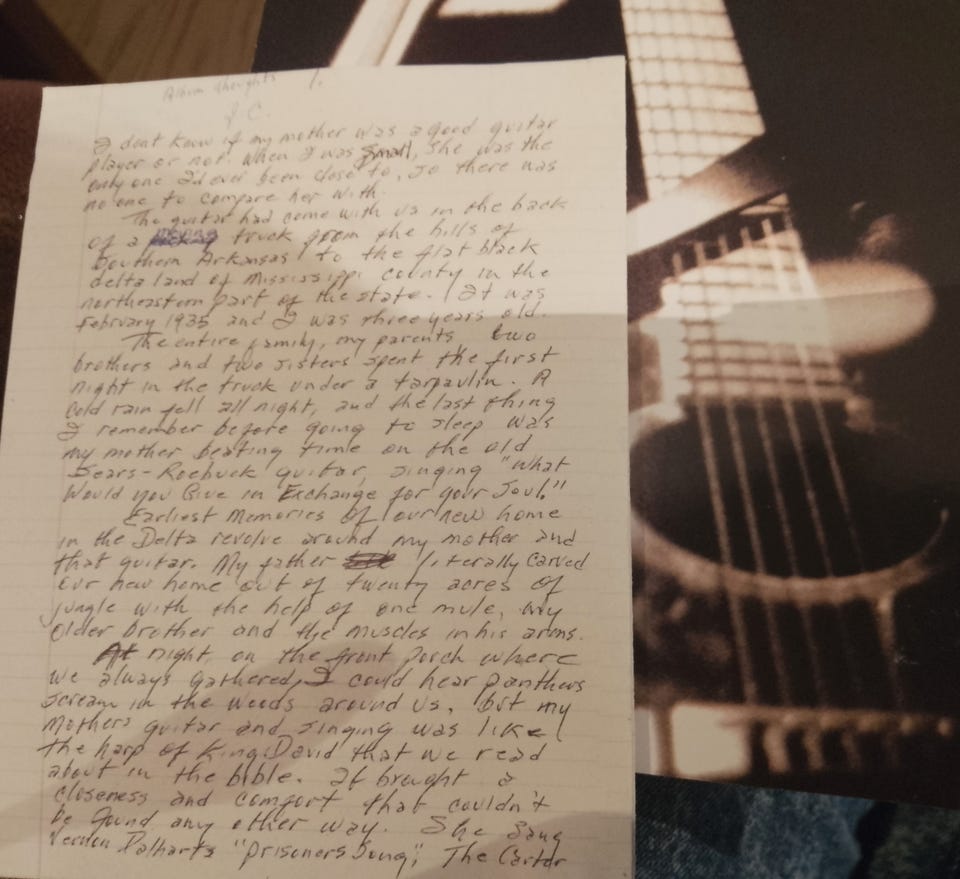 Album thoughts 1.
J.C.
I dont know if my mother was a good guitar
player or not. When I was small, she was the
only one I'd ever been close to, so there was
no one to compare her with.
The guitar had come with us in the back
of a truck from the hills of
Southern Arkansas to the flat black
delta land of Mississippi county in the
northeastern part of the state. It was
February 1935 and I was three years old.
The entire family, my parents, two
brothers and two sisters spent the first
night in the truck under a tarpaulin. A
cold rain fell all night, and the last thing
I remember before going to sleep was
my mother beating time on the old
Sears-Roebuck guitar, singing "What
Would you Give in Exchange for your Soul."
Earliest Memories of our new home
in the Delta revolve around my mother and
that guitar. My father literally carved
our new home out of twenty acres of
jungle with the help of one mule, my
older brother and the muscles in his arms.
At night, on the front porch where
we always gathered, I could hear panthers
scream in the woods around us, but my
mothers guitar and singing was like
the harp of King David that we read
about in the bible. It brought a
closeness and comfort that couldn't
be found any other way. She sang
Vernon Dalharts "Prisoners Song", The Carter